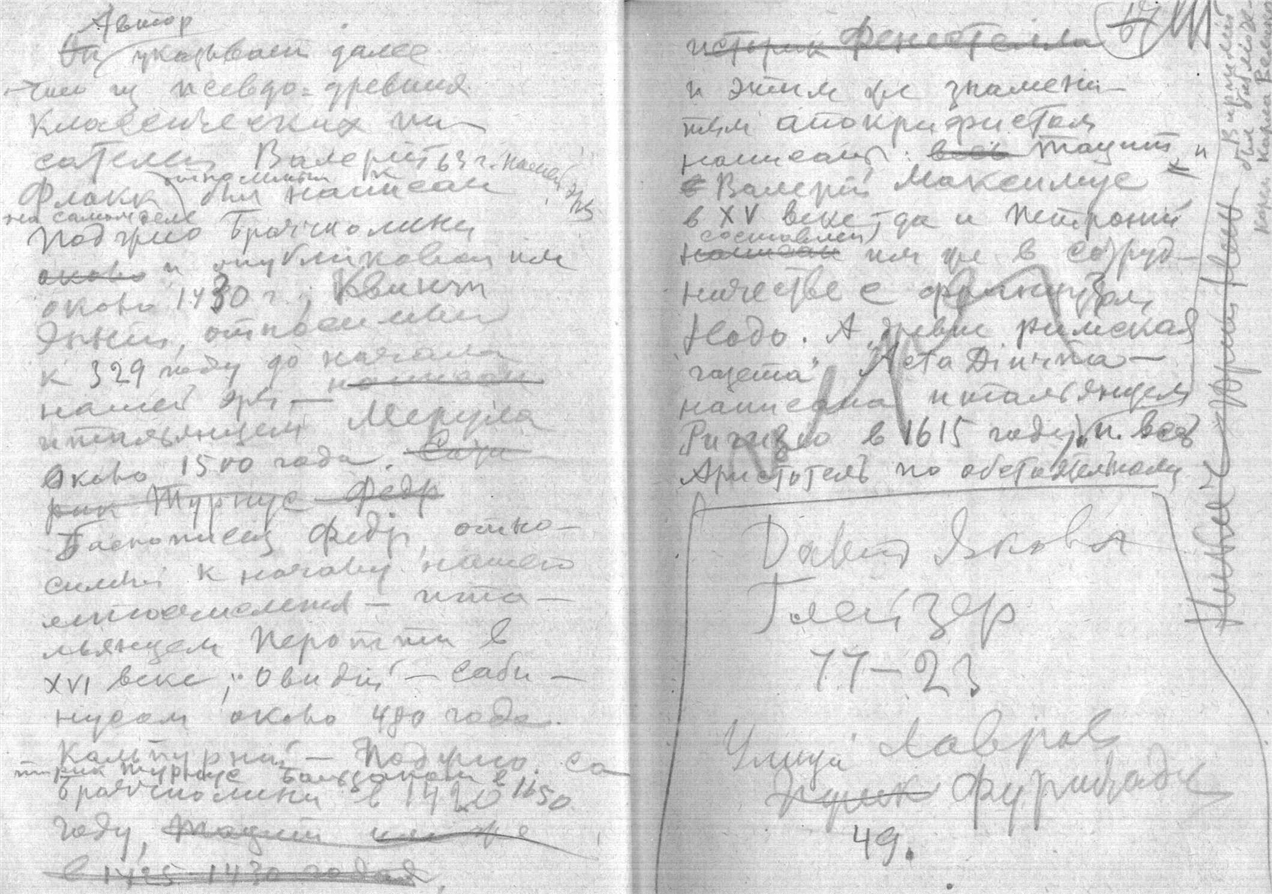 Автор
Он указывает далее
что из псевдо-древних
классических пи-
сателей Валерий 63 г. нашей эры
Флакк относимый к был написан
на самом деле
Поджио Браччиолини
около и опубликован им
около 1430 г., Квинт
Энний, относимый
к 329 году до начала
нашей эры — написан
итальянцем Мерула
около 1500 года. Сати
рик Турнус Федр
Баснописец Федр, отно-
симый к началу нашего
летоисчисления — ита-
льянцем Перотти в
XVI веке; Овидий — Саби-
нусом около 480 года.
Кальпурний — Поджио. Са
тирик Турнус Бальзаком в 1650
Браччиолини в 1420
году, Тацит им же
в 1425-1430 годах
историк Фенестелла
и этим же знамени-
тым апокрифистом
написаны: весь Тацит и
Валерий Максимус
в XV веке, да и Петроний
составлен
написан им же в сотруд-
ничестве с французом
Нодо. А древне римская
"газета" Acta Diurna —
написана итальянцем
в 1615 году, и весь
Аристотель по обстоятельному
Давид Яковл
Глейзер
77-23
Улица Лавров
Фурштадт
49.